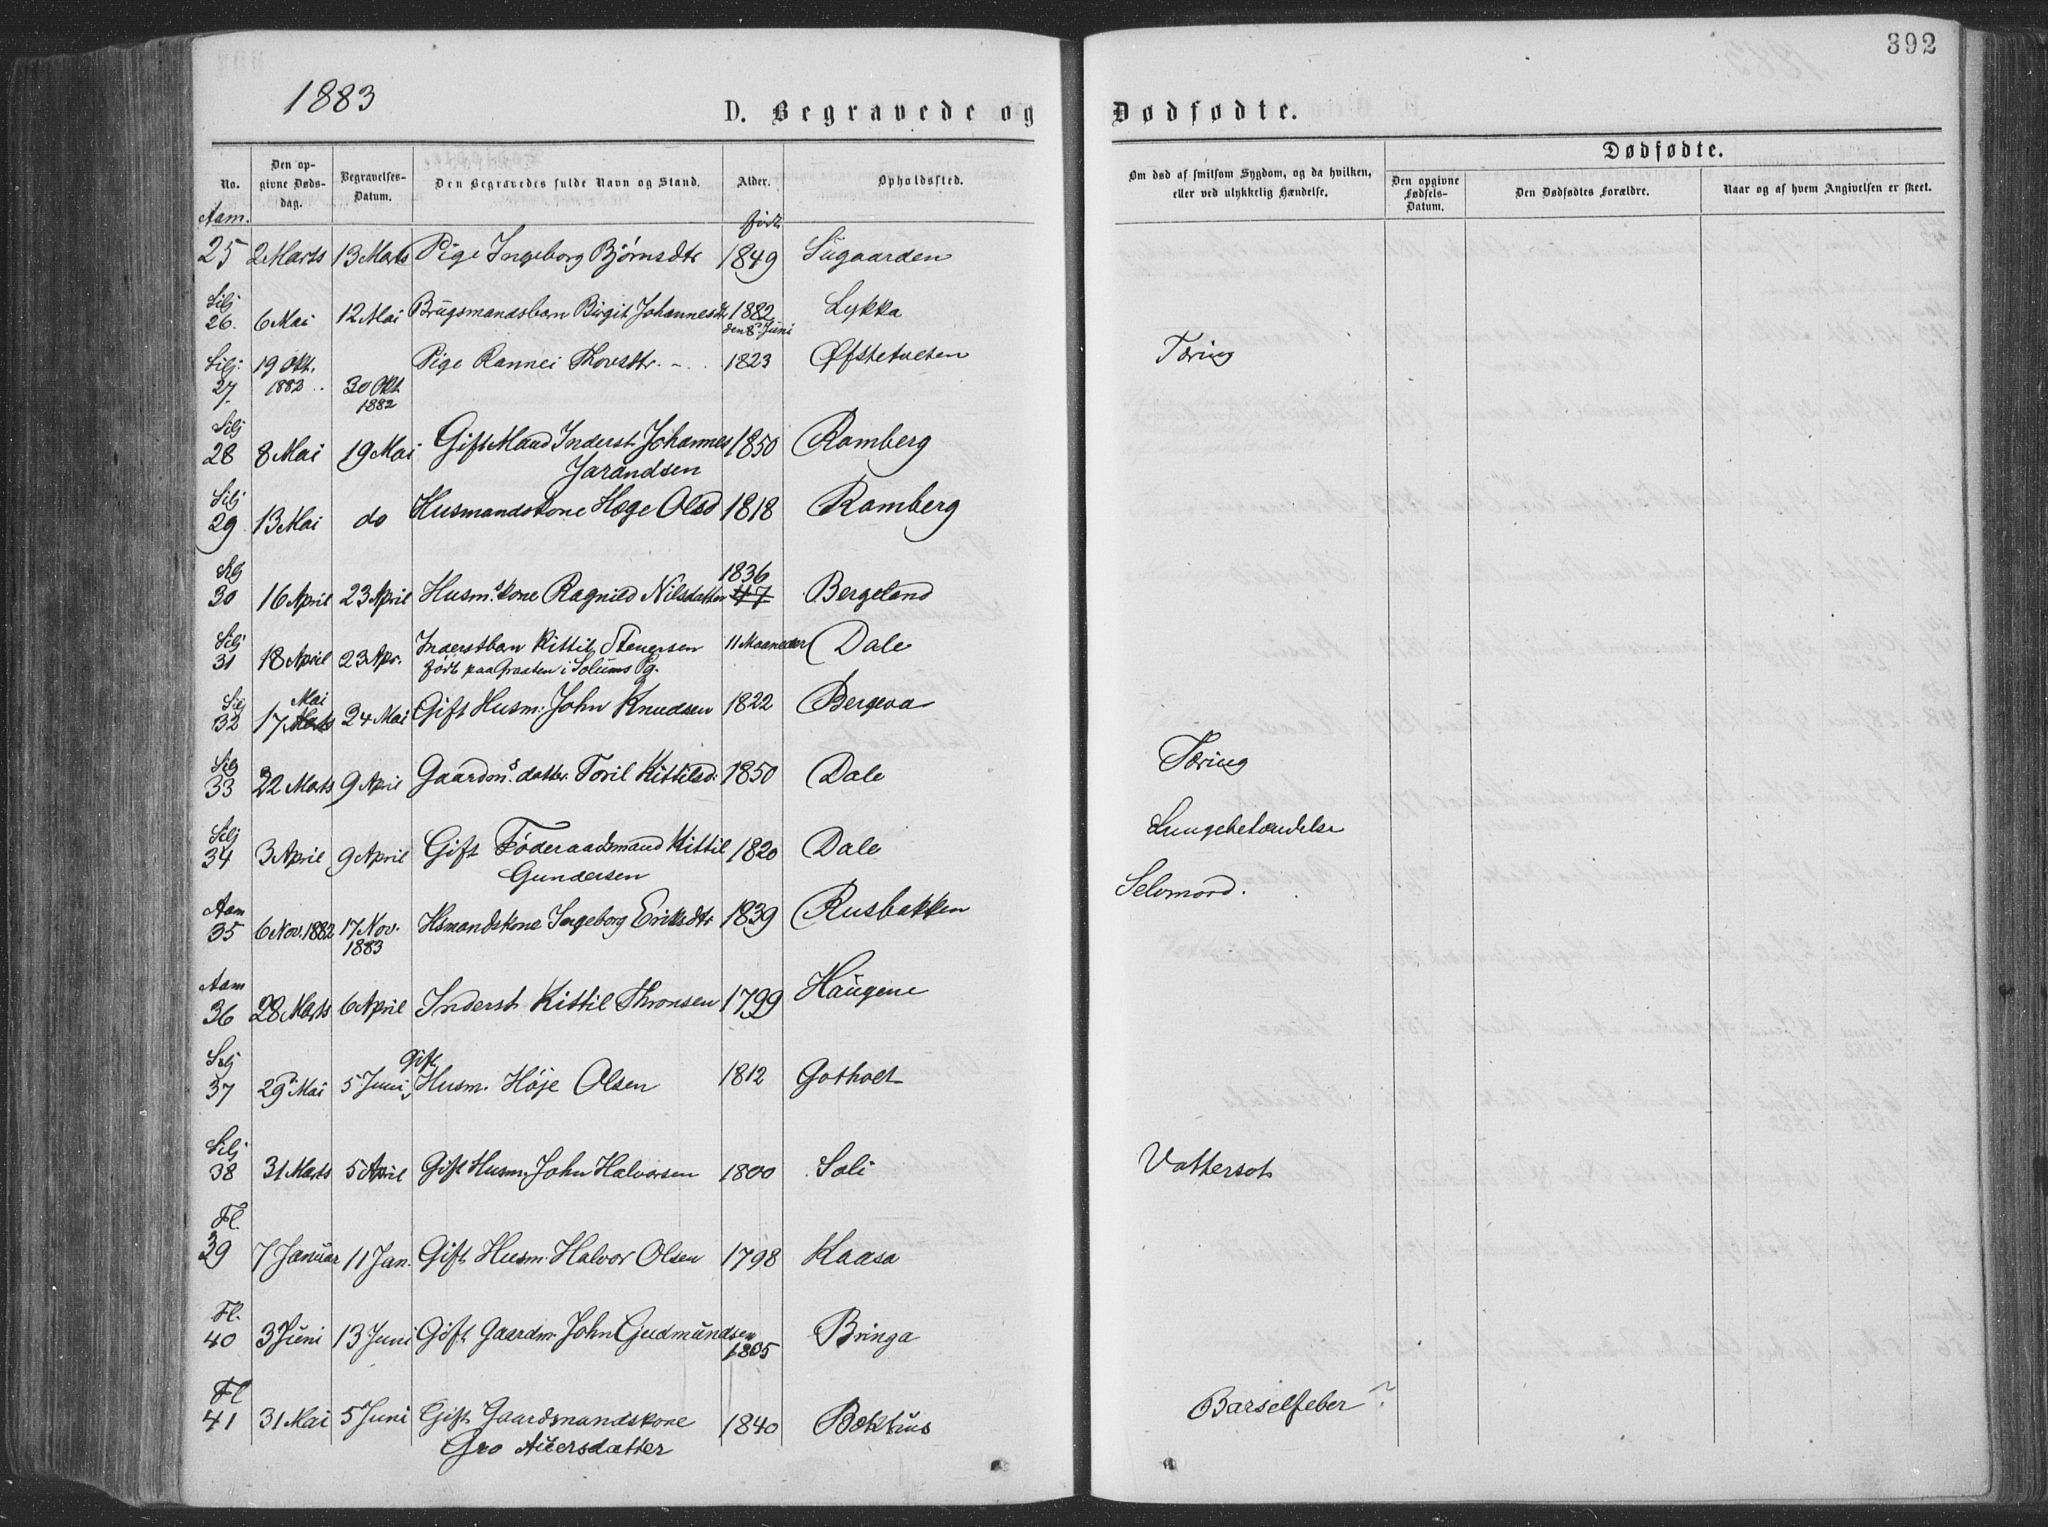 1883
392
D. Begravede og Dødfødte.
No.
Den opgivne Dødsdag.
Begravelses-Datum.
Den Begravedes fulde Navn og Stand.
Alder.
Opholdssted.
Om død af smitsom Sygdom, og da hvilken, eller ved ulykkelig Hændelse.
Dødfødte.
Den opgivne Fødsels-Datum.
Den Dødfødtes Forældre.
Naar og af hvem Angivelsen er skeet.
Aam. født
25 2 Marts 13 Marts Pige Ingeborg Bjørnsdtr 1849 Sugaarden
Silj
26. 6 Mai 12 Mai Brugsmandsbarn Birgit Johannesdtr 1882 Lykka
den 8. Juni
Silj: 19 Okt. Pige Rannei Thovsdtr. - . 1823 Øfstetveten Tæring
27 1882 30 Okt
1882
Silj
28 8 Mai 19 Mai Gift Mand Inderst Johannes 1850 Ramberg
Jarandsen
Silj
29 13 Mai do Husmandskone Hæge Olsd 1818 Ramberg
1836
30 16 April 23 April Husm.skone Ragnild Nilsdatter 47 Bergeland
Silj
31 18 April 23 Apr. Inderstbarn Kittil Steversen 11 Maaneder Dale
født paa Graaten i Solums Pg.
Mai
32 17 Marts 24 Mai Gift Husm. John Knudsen 1822 Bergeva
Silj
33 22 Marts 9 April Gaardms. datter Toril Kittilsd: 1850 Dale Tæring
Silj
34 3 April 9 April Gift Føderaadsmand Kittil 1820 Dale Lungebetændelse
Gundersen
Aam
35 6 Nov. 1882 17 Nov. 1883 Hsmandskone Ingeborg Eriksdtr 1839 Rusbakken Selvmord.
Aam
36 28 Marts 6 April Inderst Kittil Thronsen 1799 Haugene
Gift
37 29 Mai 5 Juni Husm. Høje Olsen 1812 Gotholt
Silj
38 31 Marts 5 April Gift Husm. John Halvorsen 1800 Soli Vattersot
Fl.
39 7 Januar 11 Jan. Gift Husm. Halvor Olsen 1798 Kaasa
Fl.
40 3 Juni 13 Juni Gift Gaardm. John Gudmundsen 1805 Bringa
Fl
41 31 Mai 5 Juni Gift Gaardmandskone 1840 Bækhus Barselfeber ?
Gro Auversdatter